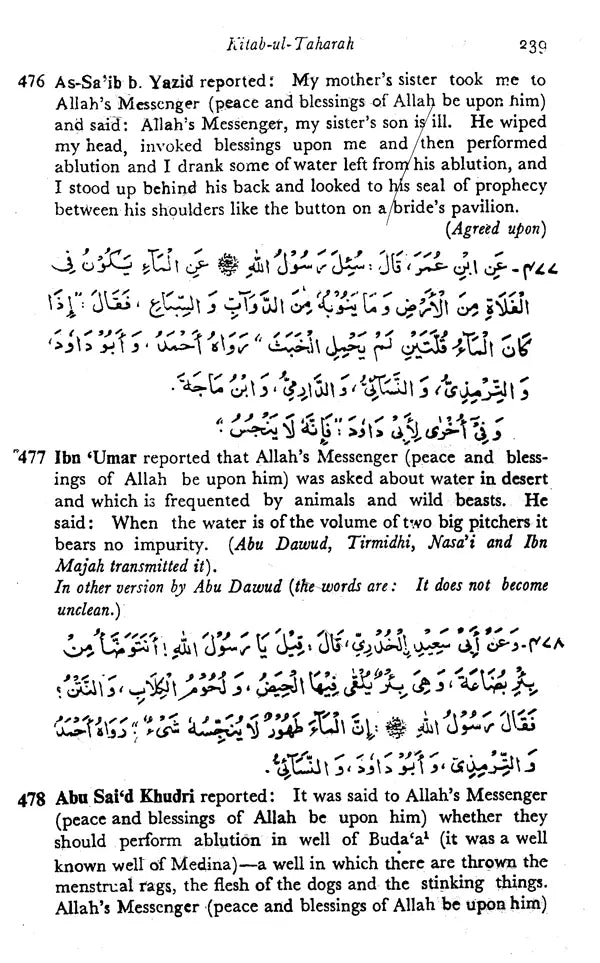 Kitab-ul-Taharah 239
476 As-Sa’ib b. Yazid reported: My mother’s sister took me to
Allah’s Messenger (peace and blessings of Allah be upon him)
and said: Allah’s Messenger, my sister’s son is ill. He wiped
my head, invoked blessings upon me and then performed
ablution and I drank some of water left from his ablution, and
I stood up behind his back and looked to his seal of prophecy
between his shoulders like the button on a bride’s pavilion.
(Agreed upon)
٤٧٧-عَنِ ابْنِ عُمَرَ، قَالَ: سُئِلَ رَسُوْلُ اللهِ ﷺ عَنِ الْمَآءِ يَكُوْنُ فِى
الْفَلَاةِ مِنَ الْأَرْضِ وَمَا يَنُوْبُهُ مِنَ الدَّوَآبِّ وَ السِّبَاعِ، فَقَالَ: "إِذَا
كَانَ الْمَآءُ قُلَّتَيْنِ لَمْ يَحْمِلِ الْخَبَثَ" رَوَاهُ أَحْمَدُ، وَ أَبُوْ دَاوٗدَ،
وَ التِّرْمِذِىُّ، وَ النَّسَآئِىُّ، وَ الدَّارِمِىُّ، وَ ابْنُ مَاجَةَ.
وَ فِىْ أُخْرٰى لِأَبِىْ دَاوٗدَ: "فَإِنَّهُ لَا يَنْجُسُ"
477 Ibn ‘Umar reported that Allah’s Messenger (peace and bless-
ings of Allah be upon him) was asked about water in desert
and which is frequented by animals and wild beasts. He
said: When the water is of the volume of two big pitchers it
bears no impurity. (Abu Dawud, Tirmidhi, Nasa’i and Ibn
Majah transmitted it).
In other version by Abu Dawud (the words are: It does not become
unclean.)
٤٧٨-وَعَنْ أَبِىْ سَعِيْدِ الْخُدْرِىِّ، قَالَ: قِيْلَ يَا رَسُوْلَ اللهِ! أَنَتَوَضَّأُ مِنْ
بِئْرِ بُضَاعَةَ، وَ هِىَ بِئْرٌ يُلْقٰى فِيْهَا الْحِيَضُ، وَ لُحُوْمُ الْكِلَابِ، وَ النَّتْنُ؟
فَقَالَ رَسُوْلُ اللهِ ﷺ: إِنَّ الْمَآءَ طَهُوْرٌ لَا يُنَجِّسُهُ شَىْءٌ" رَوَاهُ أَحْمَدُ
وَ التِّرْمِذِىُّ، وَ أَبُوْ دَاوٗدَ، وَ النَّسَآئِىُّ.
478 Abu Sai‘d Khudri reported: It was said to Allah’s Messenger
(peace and blessings of Allah be upon him) whether they
should perform ablution in well of Buda‘a¹ (it was a well
known well of Medina)—a well in which there are thrown the
menstrual rags, the flesh of the dogs and the stinking things.
Allah’s Messenger (peace and blessings of Allah be upon him)